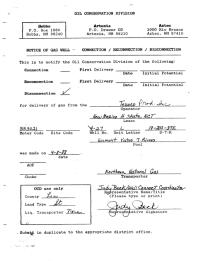 OIL CONSERVATION DIVISION
Hobbs
P.O. Box 1980
Hobbs, NM 88240
Artesia
P.O. Drawer DD
Artesia, NM 88210
Aztec
1000 Rio Brazos
Aztec, NM 87410
NOTICE OF GAS WELL - CONNECTION / RECONNECTION / DISCONNECTION
This is to notify the Oil Conservation Division of the following:
Connection First Delivery
Date Initial Potential
Reconnection First Delivery
Date Initial Potential
Disconnection
for delivery of gas from the Texaco Prod. Inc.
Operator
New Mexico State
Lease
Meter Code Site Code Well No. Unit Letter S-T-R
Pool
was made on
date
AOF
Choke
Northern Natural Gas
Transporter
OCD use only
County
Land Type
Liq. Transporter
Representative Name/Title
(Please type or print)
Representative Signature
Submit in duplicate to the appropriate district office.